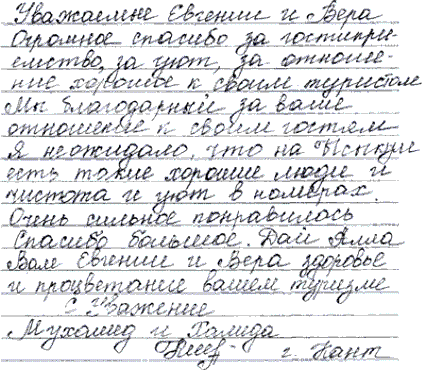 Уважаемие Евгении и Вера
Огромное спасибо за гостипри-
емство, за уют, за отноше-
ние хорошое к своим туристом
Мы благодарный за ваше
отношение к своим гостям
Я неожидало, что на Ысыкуле
есть такие хорошие люди и
чистота и уют в номерах.
Очень сильное понравилось
Спасибо большое. Дай Алла
Вам Евгении и Вера здоровье
и процветание вашем туризме
С Уважение
Мухамед и Халида
г. Кант